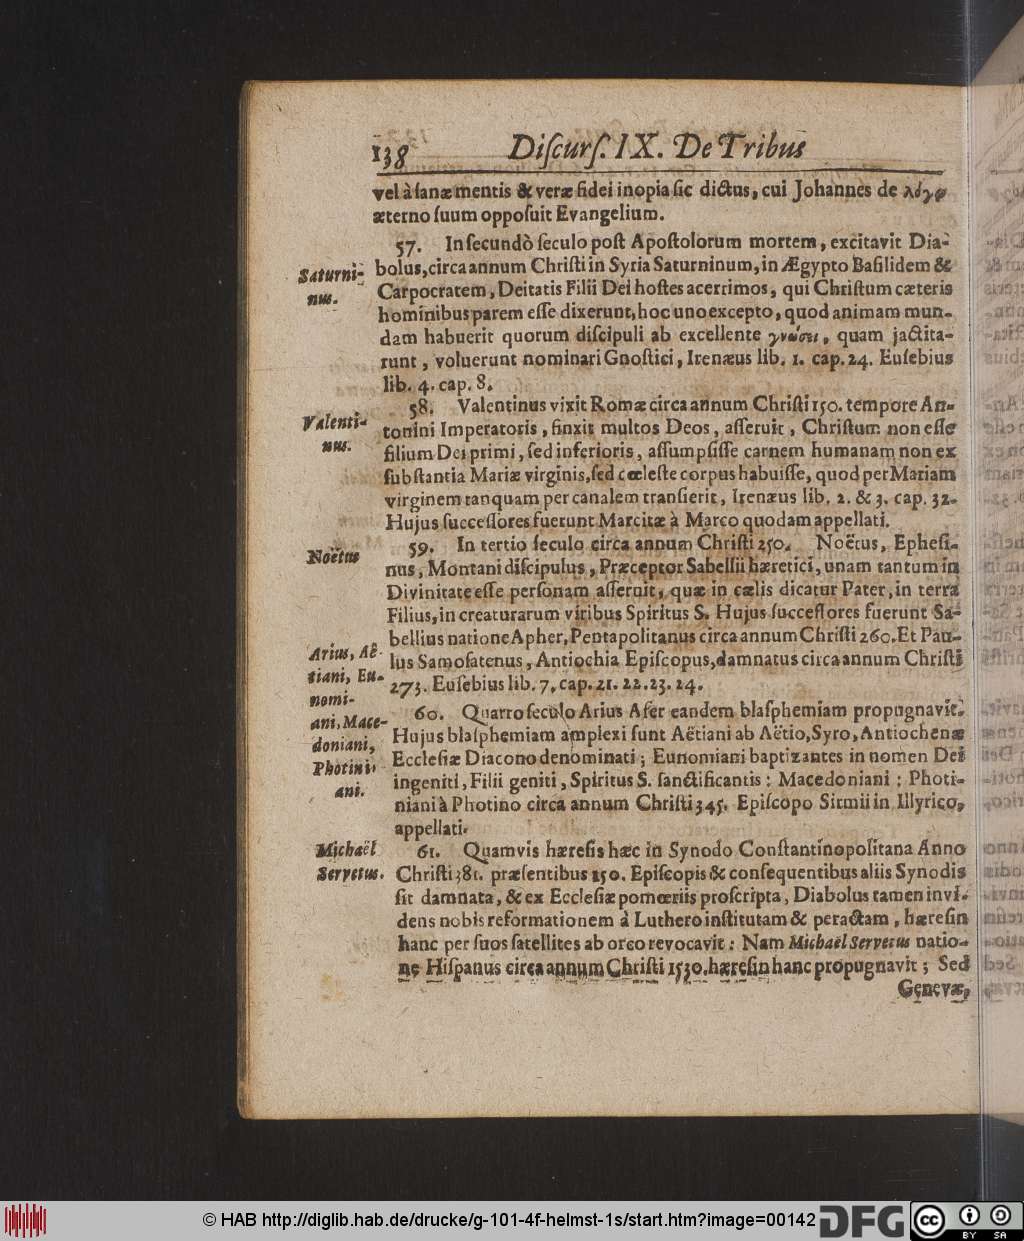 138 Diſcurſ. IX. De Tribus
vel à ſanæ mentis & veræ fidei inopia ſic dictus, cui Johannes de λόγῳ
æterno ſuum oppoſuit Evangelium.
57. In ſecundò ſeculo poſt Apoſtolorum mortem, excitavit Dia-
Saturni-
nus.
bolus, circa annum Chriſti in Syria Saturninum, in Ægypto Baſilidem &
Carpocratem, Deitatis Filii Dei hoſtes acerrimos, qui Chriſtum cæteris
hominibus parem eſſe dixerunt, hoc uno excepto, quod animam mun-
dam habuerit quorum diſcipuli ab excellente γνώσει, quam jactita-
runt, voluerunt nominari Gnoſtici, Irenæus lib. 1. cap. 24. Euſebius
lib. 4. cap. 8.
58. Valentinus vixit Romæ circa annum Chriſti 150. tempore An-
Valenti-
nus.
tonini Imperatoris, finxit multos Deos, aſſeruit, Chriſtum non eſſe
filium Dei primi, ſed inferioris, aſſumpſiſſe carnem humanam non ex
ſubſtantia Mariæ virginis, ſed cœleſte corpus habuiſſe, quod per Mariam
virginem tanquam per canalem tranſierit, Irenæus lib. 2. & 3. cap. 32.
Hujus ſucceſſores fuerunt Marcitæ à Marco quodam appellati.
Noëtus
59. In tertio ſeculo circa annum Chriſti 250. Noëtus, Epheſi-
nus, Montani diſcipulus, Præceptor Sabellii hæretici, unam tantum in
Divinitate eſſe perſonam aſſeruit, quæ in cælis dicatur Pater, in terra
Filius, in creaturarum viribus Spiritus S. Hujus ſucceſſores fuerunt Sa-
bellius natione Apher, Pentapolitanus circa annum Chriſti 260. Et Pau-
lus Samoſatenus, Antiochia Epiſcopus, damnatus circa annum Chriſti
273. Euſebius lib. 7. cap. 21. 22. 23. 24.
Arius, Aë-
tiani, Eu-
nomi-
ani, Mace-
doniani,
Photini-
ani.
60. Quarto ſeculo Arius Afer eandem blaſphemiam propugnavit.
Hujus blaſphemiam amplexi ſunt Aëtiani ab Aëtio, Syro, Antiochenæ
Eccleſiæ Diacono denominati; Eunomiani baptizantes in nomen Dei
ingeniti, Filii geniti, Spiritus S. ſanctificantis: Macedoniani: Photi-
niani à Photino circa annum Chriſti 345. Epiſcopo Sirmii in Illyrico,
appellati.
Michaël
Servetus.
61. Quamvis hæreſis hæc in Synodo Conſtantinopolitana Anno
Chriſti 381. præſentibus 150. Epiſcopis & conſequentibus aliis Synodis
ſit damnata, & ex Eccleſiæ pomœriis proſcripta, Diabolus tamen invi-
dens nobis reformationem à Luthero inſtitutam & peractam, hæreſin
hanc per ſuos ſatellites ab orco revocavit: Nam Michaël Servetus natio-
ne Hiſpanus circa annum Chriſti 1530. hæreſin hanc propugnavit; Sed
Genevæ,
© HAB http://diglib.hab.de/drucke/g-101-4f-helmst-1s/start.htm?image=00142
DFG
cc BY SA